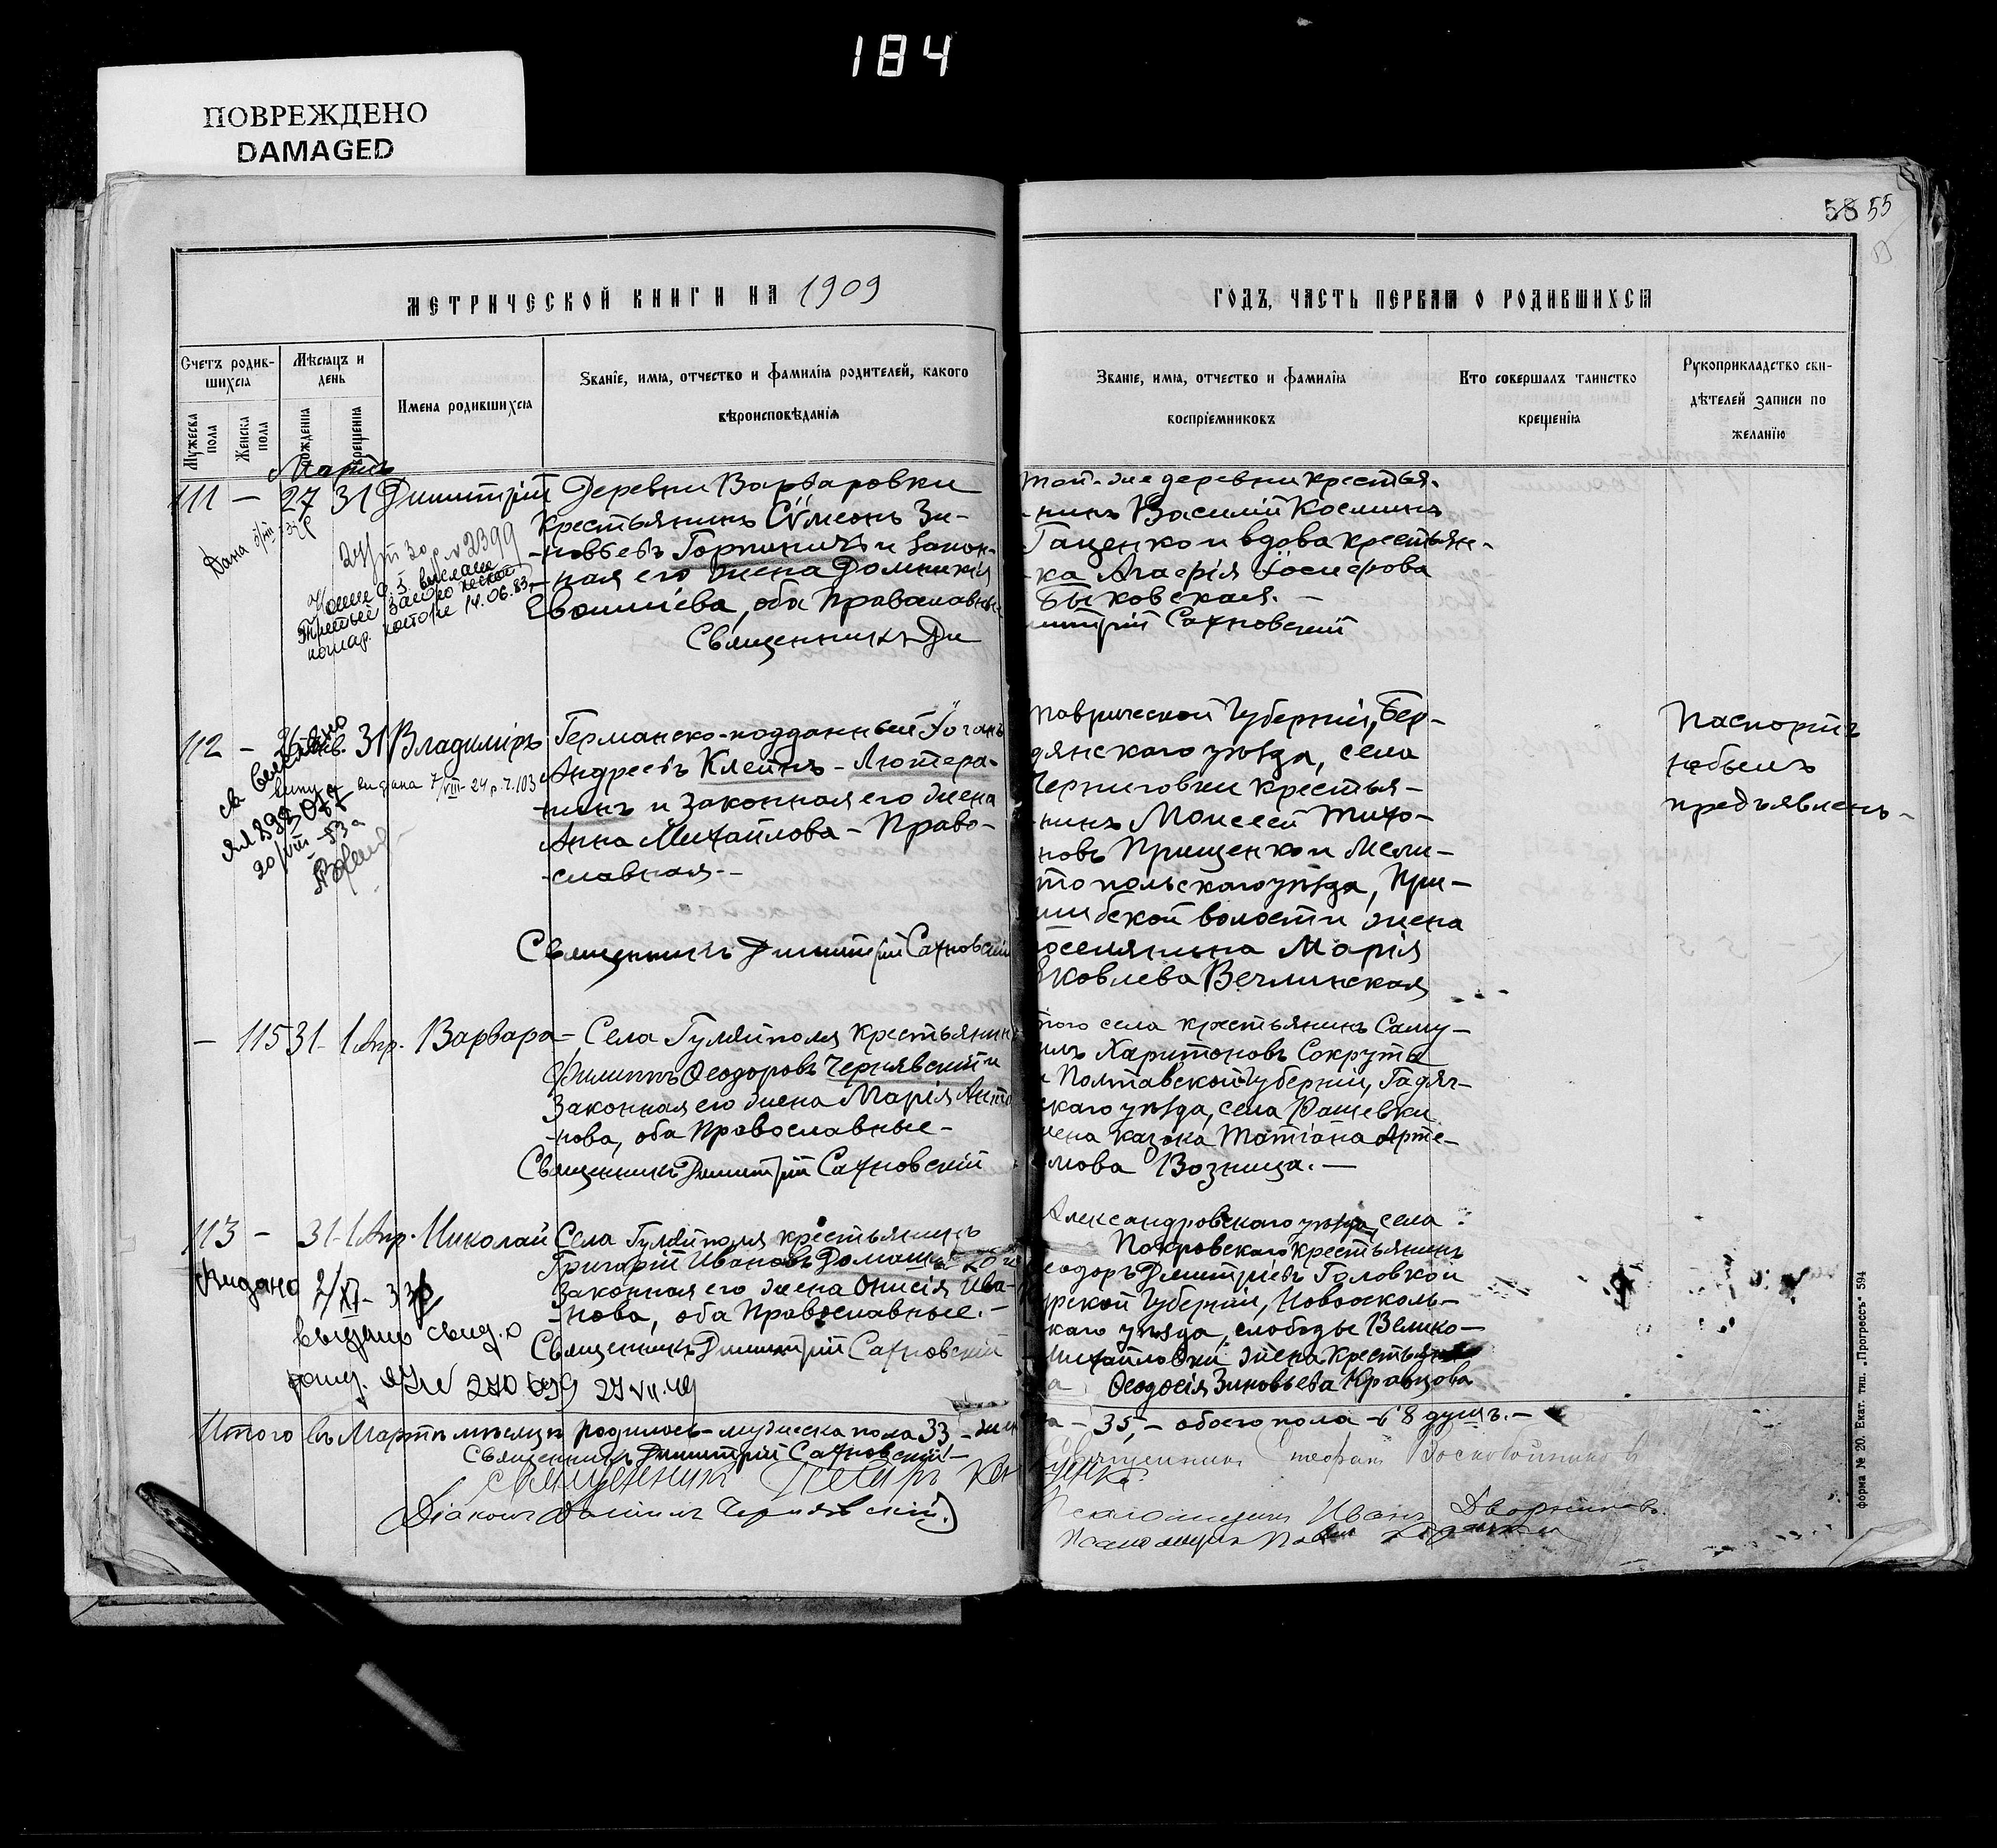 184
ПОВРЕЖДЕНО
DAMAGED
58 55
МЕТРИЧЕСКОЙ КНИГИ НА 1909
ГОДЪ, ЧАСТЬ ПЕРВАЯ О РОДИВШИХСЯ
Счетъ родив-
шихся
Мѣсяцъ и
день
Мужеска пола
Женска пола
рожденія
крещенія
Имена родившихся
Званіе, имя, отчество и фамилія родителей, какого
вѣроисповѣданія
Званіе, имя, отчество и фамилія
воспріемниковъ
Кто совершалъ таинство
крещенія
Рукоприкладство сви-
дѣтелей записи по
желанію
Мартъ
111 — 27 31 Димитрій Деревни Варваровки
крестьянинъ Сѵмеонъ Зи-
-новьевъ Горпиничъ и закон-
-ная его жена Домникія
оба православные
Священникъ Ди
той-же деревни крестья-
-нинъ Василій Косминъ
Гащенко и вдова крестьян-
-ка Агафія Іосифова
Быковская. —
митрій Сахновскій
Дана
№ 2399
14.06.83
112 — 31 Владиміръ Германско-подданный Іоганъ
Андреевъ Клейнъ - Лютера-
-нинъ и законная его жена
Анна Михайлова - Право-
-славная. -
Священникъ Димитрій Сахновскій
видана 7/VIII-24 р. ч. 103
20/VIII-53
Таврической губерніи, Бер-
дянскаго уѣзда, села
Черниговки крестья-
-нинъ Моисей Тихо-
новъ Прищенко и Мели-
топольскаго уѣзда, При-
шибской волости жена
поселянина Марія
Яковлева Вечлинская
Паспортъ
не былъ
предъявленъ -
— 115 31 - 1 Апр. Варвара - Села Гуляйполя крестьянинъ
Филиппъ Ѳеодоровъ Чернявскій и
законная его жена Марія Анто
-нова, оба Православные -
Священникъ Димитрій Сахновскій
того села крестьянинъ Саму-
илъ Харитоновъ Сокрута
и Полтавской губерніи, Гадяч-
скаго уѣзда, села Рашевки
жена казака Татіана Арте-
мова Возница. —
113 — 31 - 1 Апр. Николай Села Гуляйполя крестьянинъ
Григорій Ивановъ
законная его жена Онисія Ива-
-нова, оба Православные. -
Священникъ Димитрій Сахновскій
Видано 2/XI - 33 р.
выдано свид. о
рожд. 27.VII.49
Александровскаго уѣзда, села
Покровскаго крестьянинъ
Ѳеодоръ Димитріевъ Головко и
Курской губерніи, Новоосколь-
скаго уѣзда, слободы Велико-
Михайловки жена крестьян
Ѳеодосія Зиновьева Кравцова
Итого въ Мартѣ мѣсяцѣ родилось - мужеска пола 33 - жен
ска - 35, - обоего пола - 68 душъ. -
Священникъ Димитрій Сахновскій -
Священникъ Петръ
Священникъ Стефанъ Воскобойниковъ
Діаконъ Даніилъ Чернявскій
Псаломщикъ Иванъ Дворниковъ.
Псаломщикъ
форма № 20. Екат. тип. „Прогрессъ“ 594